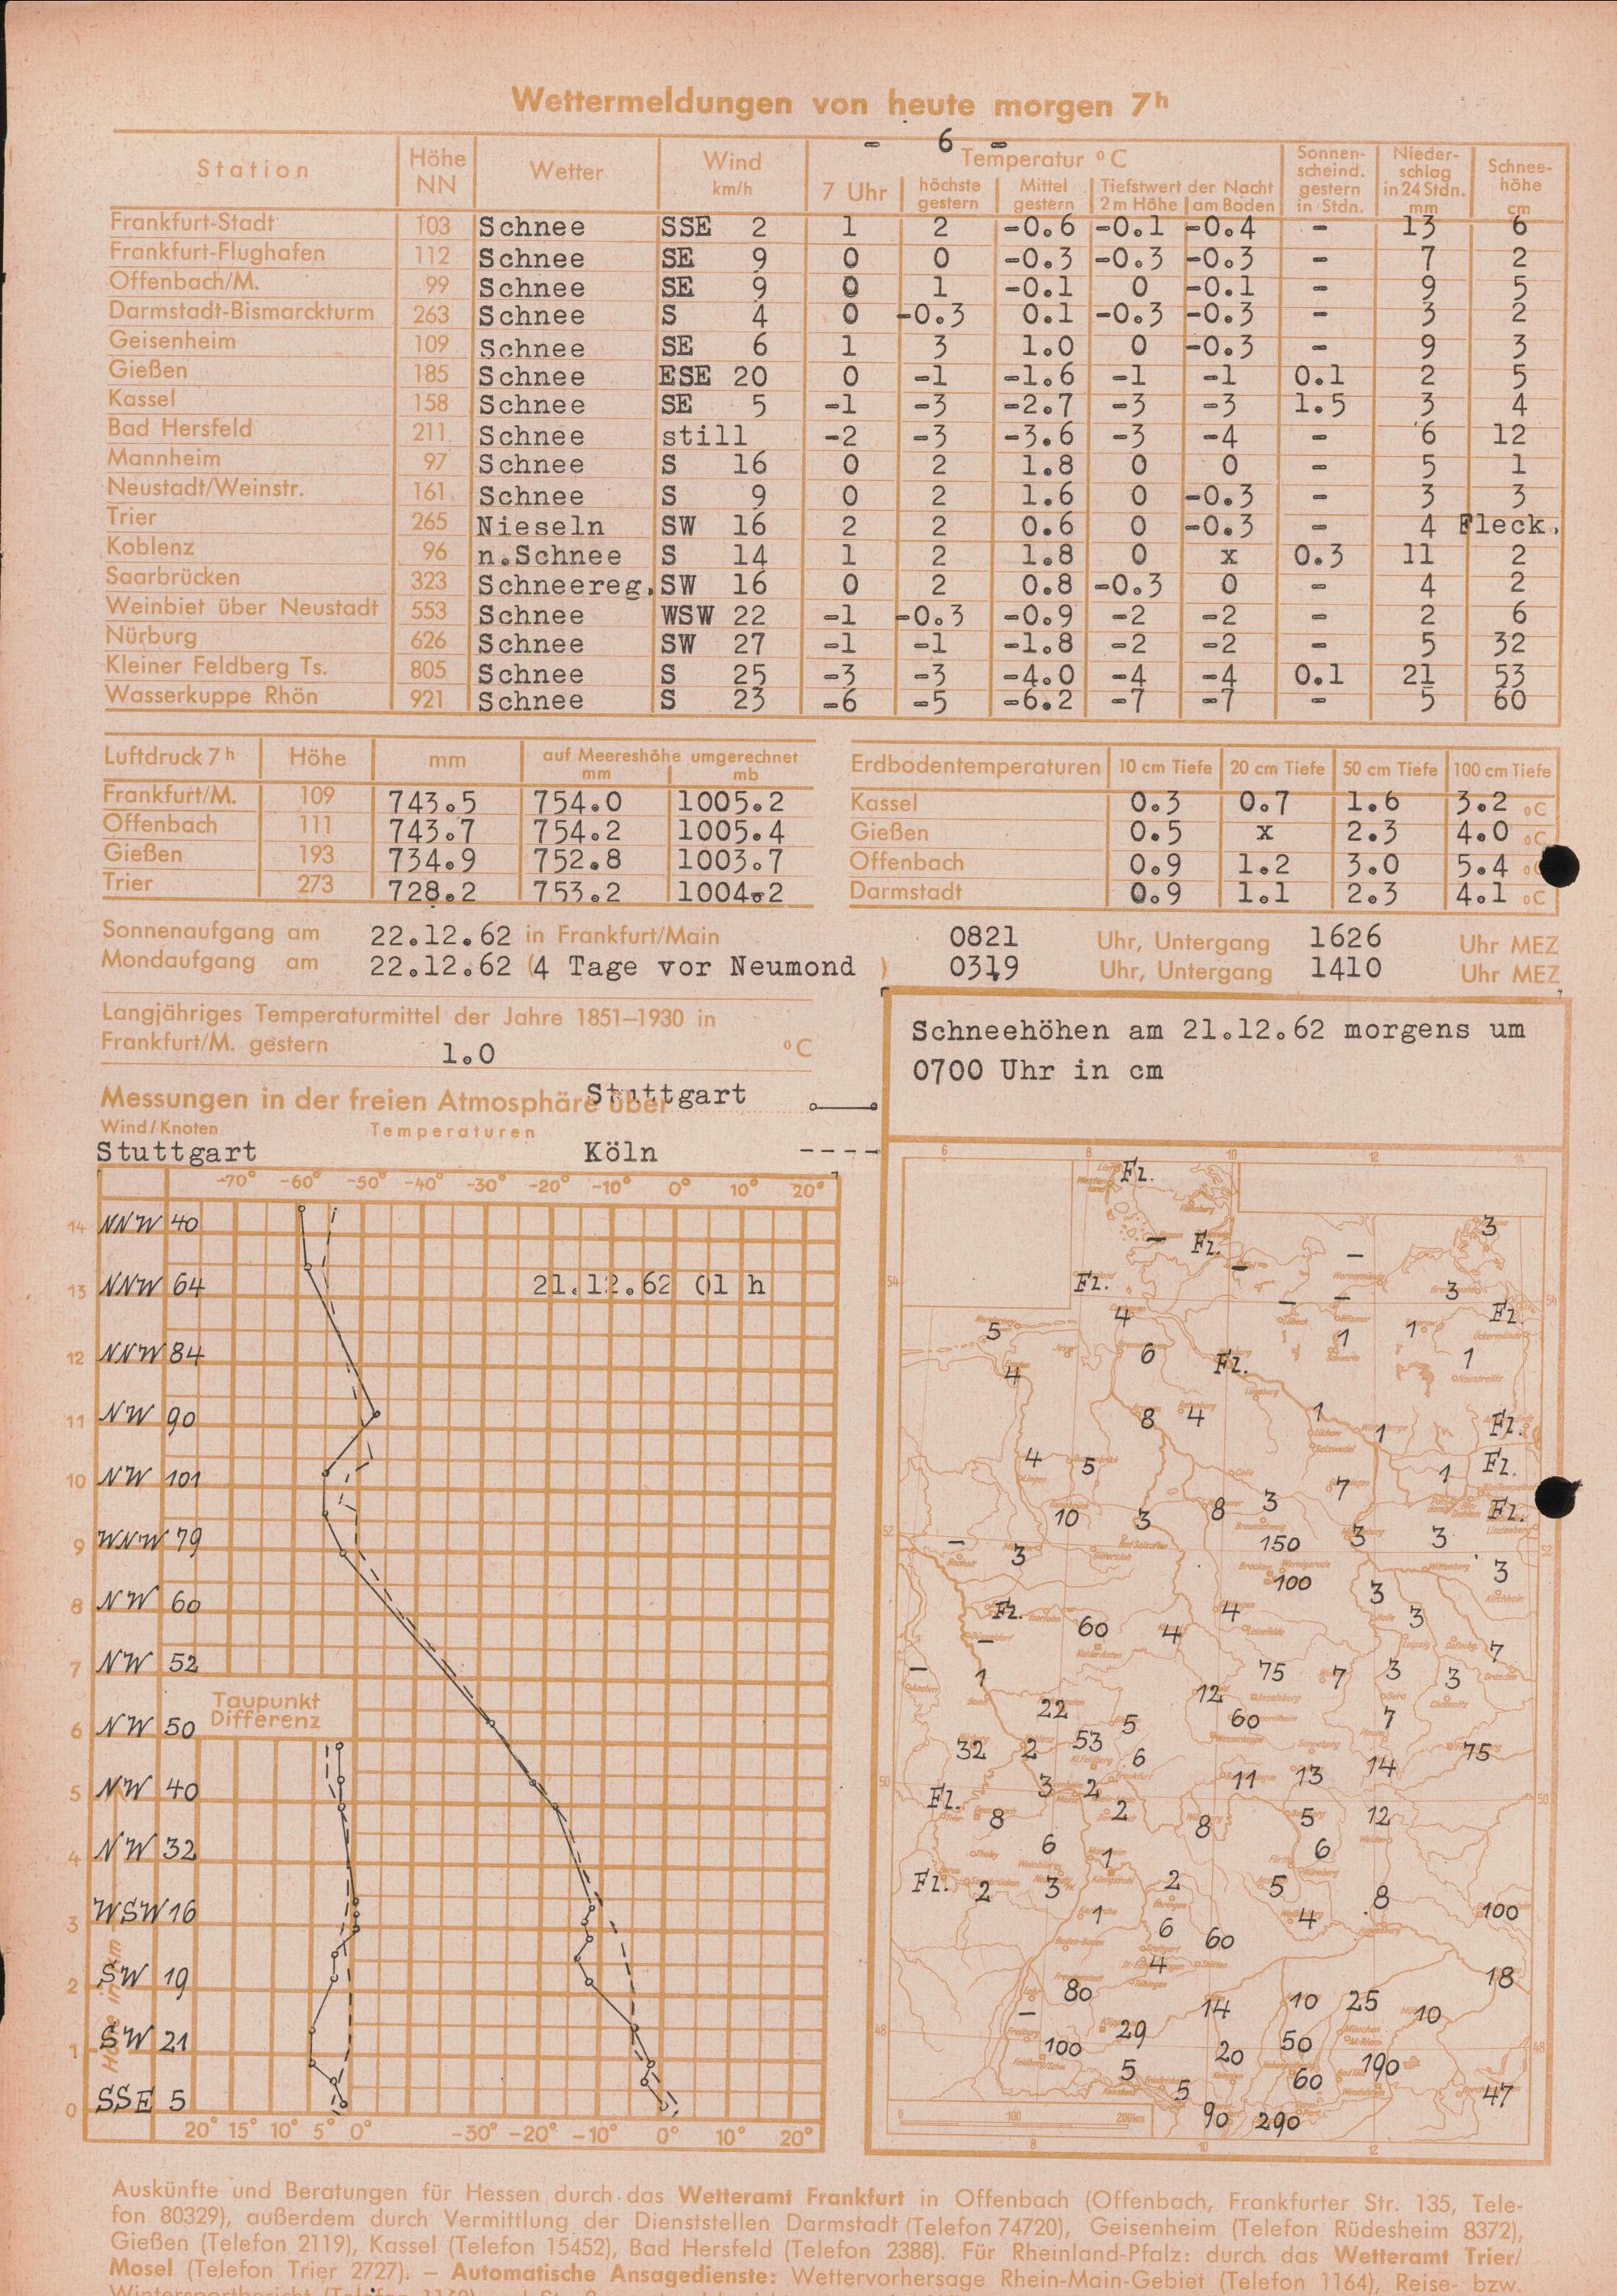 Wettermeldungen von heute morgen 7h
- 6 -
Station Höhe NN Wetter Wind km/h Temperatur °C 7 Uhr höchste gestern Mittel gestern Tiefstwert der Nacht 2 m Höhe am Boden Sonnen-scheind. gestern in Stdn. Nieder-schlag in 24 Stdn. mm Schnee-höhe cm
Frankfurt-Stadt 103 Schnee SSE 2 1 2 -0.6 -0.1 -0.4 - 13 6
Frankfurt-Flughafen 112 Schnee SE 9 0 0 -0.3 -0.3 -0.3 - 7 2
Offenbach/M. 99 Schnee SE 9 0 1 -0.1 0 -0.1 - 9 5
Darmstadt-Bismarckturm 263 Schnee S 4 0 -0.3 0.1 -0.3 -0.3 - 3 2
Geisenheim 109 Schnee SE 6 1 3 1.0 0 -0.3 - 9 3
Gießen 185 Schnee ESE 20 0 -1 -1.6 -1 -1 0.1 2 5
Kassel 158 Schnee SE 5 -1 -3 -2.7 -3 -3 1.5 3 4
Bad Hersfeld 211 Schnee still -2 -3 -3.6 -3 -4 - 6 12
Mannheim 97 Schnee S 16 0 2 1.8 0 0 - 5 1
Neustadt/Weinstr. 161 Schnee S 9 0 2 1.6 0 -0.3 - 3 3
Trier 265 Nieseln SW 16 2 2 0.6 0 -0.3 - 4 Fleck.
Koblenz 96 n.Schnee S 14 1 2 1.8 0 x 0.3 11 2
Saarbrücken 323 Schneereg. SW 16 0 2 0.8 -0.3 0 - 4 2
Weinbiet über Neustadt 553 Schnee WSW 22 -1 -0.3 -0.9 -2 -2 - 2 6
Nürburg 626 Schnee SW 27 -1 -1 -1.8 -2 -2 - 5 32
Kleiner Feldberg Ts. 805 Schnee S 25 -3 -3 -4.0 -4 -4 0.1 21 53
Wasserkuppe Rhön 921 Schnee S 23 -6 -5 -6.2 -7 -7 - 5 60
Luftdruck 7h Höhe mm auf Meereshöhe umgerechnet mm mb
Frankfurt/M. 109 743.5 754.0 1005.2
Offenbach 111 743.7 754.2 1005.4
Gießen 193 734.9 752.8 1003.7
Trier 273 728.2 753.2 1004.2
Erdbodentemperaturen 10 cm Tiefe 20 cm Tiefe 50 cm Tiefe 100 cm Tiefe
Kassel 0.3 0.7 1.6 3.2 °C
Gießen 0.5 x 2.3 4.0 °C
Offenbach 0.9 1.2 3.0 5.4
Darmstadt 0.9 1.1 2.3 4.1 °C
Sonnenaufgang am 22.12.62 in Frankfurt/Main 0821 Uhr, Untergang 1626 Uhr MEZ
Mondaufgang am 22.12.62 (4 Tage vor Neumond ) 0319 Uhr, Untergang 1410 Uhr MEZ
Langjähriges Temperaturmittel der Jahre 1851–1930 in
Frankfurt/M. gestern 1.0 °C
Messungen in der freien Atmosphäre über Stuttgart
Wind/Knoten Temperaturen
Stuttgart Köln ----
-70° -60° -50° -40° -30° -20° -10° 0° 10° 20°
14 NNW 40
13 NNW 64 21.12.62 01 h
12 NNW 84
11 NW 90
10 NW 101
9 WNW 79
8 NW 60
7 NW 52
Taupunkt
Differenz
6 NW 50
5 NW 40
4 NW 32
3 WSW 16
2 SW 19
1 SW 21
0 SSE 5
Höhe in km
20° 15° 10° 5° 0° -30° -20° -10° 0° 10° 20°
Schneehöhen am 21.12.62 morgens um
0700 Uhr in cm
6 8 10 12 14
Fl.
3
- Fl. -
Fl. - 3
- - Fl.
5 4 1 1
6 Fl. 1
4
8 4 1 1 Fl.
4 5 1 Fl.
10 3 8 3 7 Fl.
- 3 150 3 3
100 3 3
Fl. 60 4 4 3
- 7
- 1 75 7 3 3
22 12
5 60 7
32 2 53 6 75
3 2 11 13 14
Fl. 8 2 8 5 12
6 1 6
Fl. 2 3 2 5 8
1 4 100
6 60
4 18
80 14 10 25 10
- 29
100 20 50 190
5 5 60 47
90 290
0 100 200km
8 10 12
Auskünfte und Beratungen für Hessen durch das Wetteramt Frankfurt in Offenbach (Offenbach, Frankfurter Str. 135, Tele-
fon 80329), außerdem durch Vermittlung der Dienststellen Darmstadt (Telefon 74720), Geisenheim (Telefon Rüdesheim 8372),
Gießen (Telefon 2119), Kassel (Telefon 15452), Bad Hersfeld (Telefon 2388). Für Rheinland-Pfalz: durch das Wetteramt Trier/
Mosel (Telefon Trier 2727). – Automatische Ansagedienste: Wettervorhersage Rhein-Main-Gebiet (Telefon 1164), Reise- bzw.